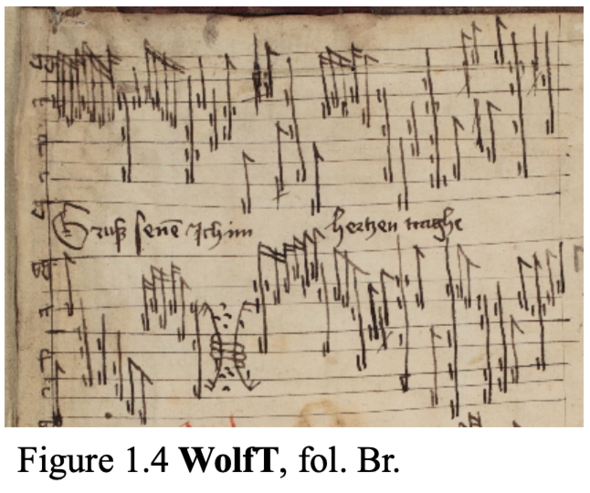 Gruß senē Ich im hertzen traghe
Figure 1.4 WolfT, fol. Br.